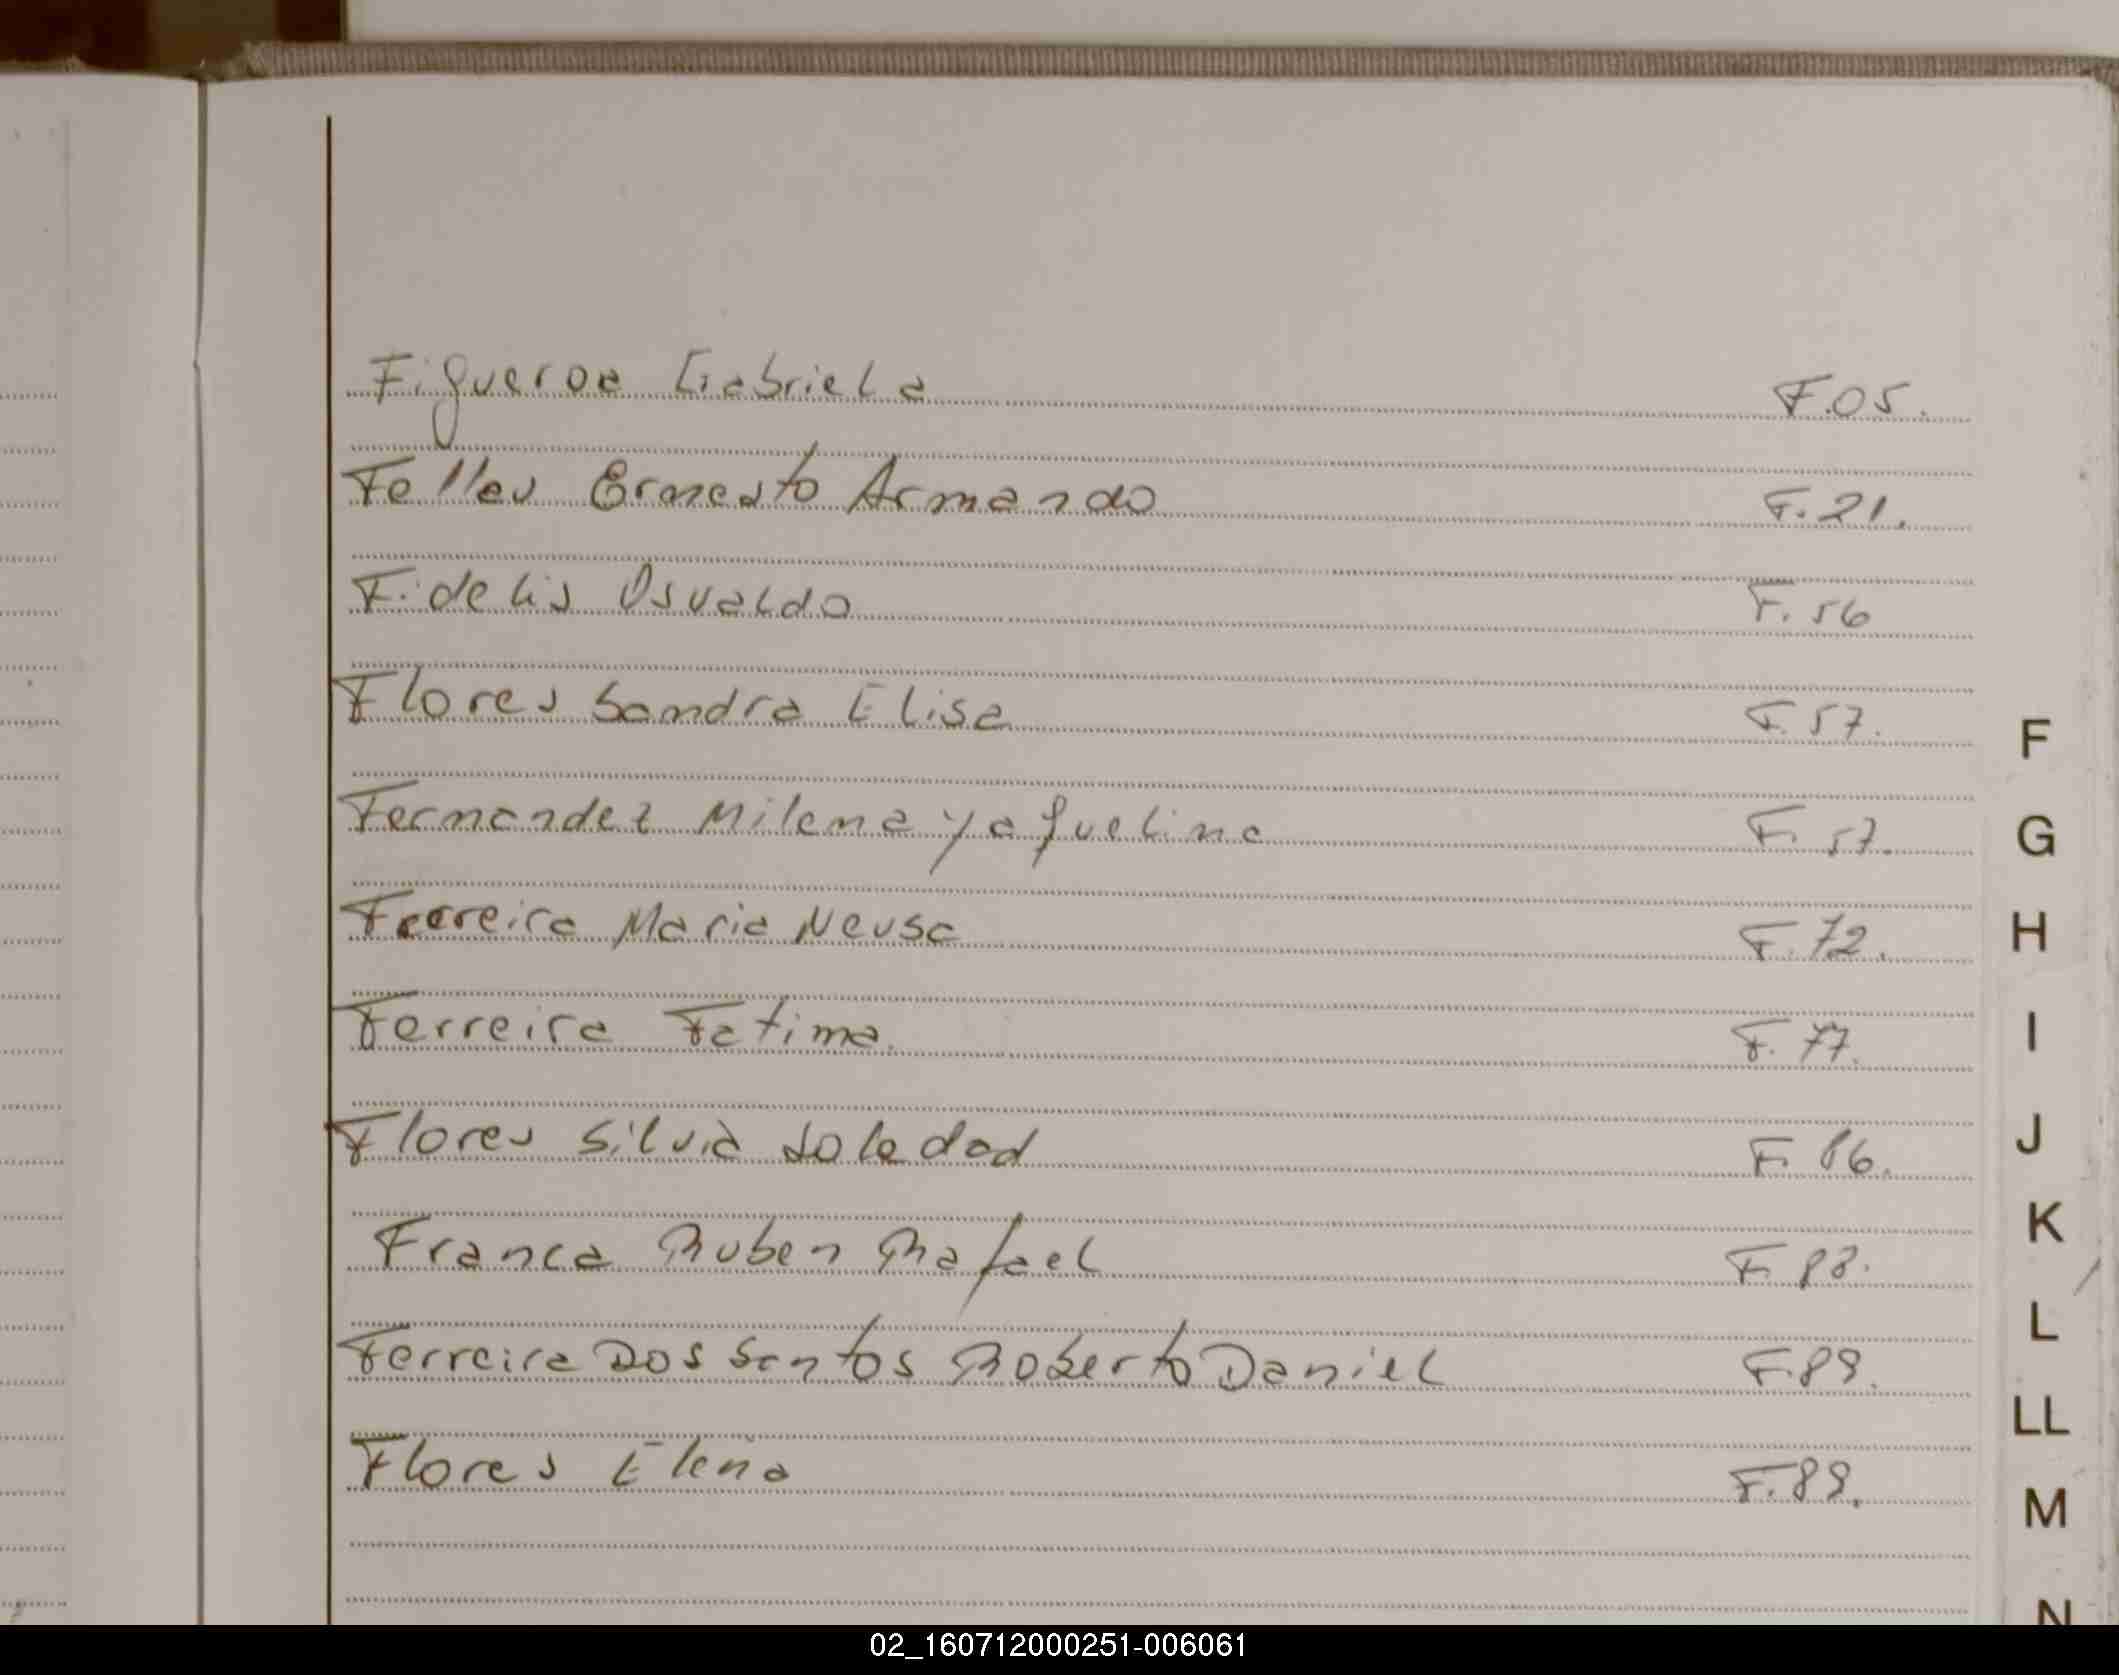 Figueroa Gabriela F.05.
Felleu Ernesto Armando F.21.
Fidelis Osvaldo F.56
Flores Sandra Elisa F.57.
Fernandez Milena Yaquelina F.57.
Ferreira Maria Neusa F.72.
Ferreira Fatima. F.77.
Flores Silvia Soledad F.86.
Franca Ruben Rafael F.88.
Ferreira Dos Santos Roberto Daniel F.89.
Flores Elena F.89.
F
G
H
I
J
K
L
LL
M
N
02_160712000251-006061